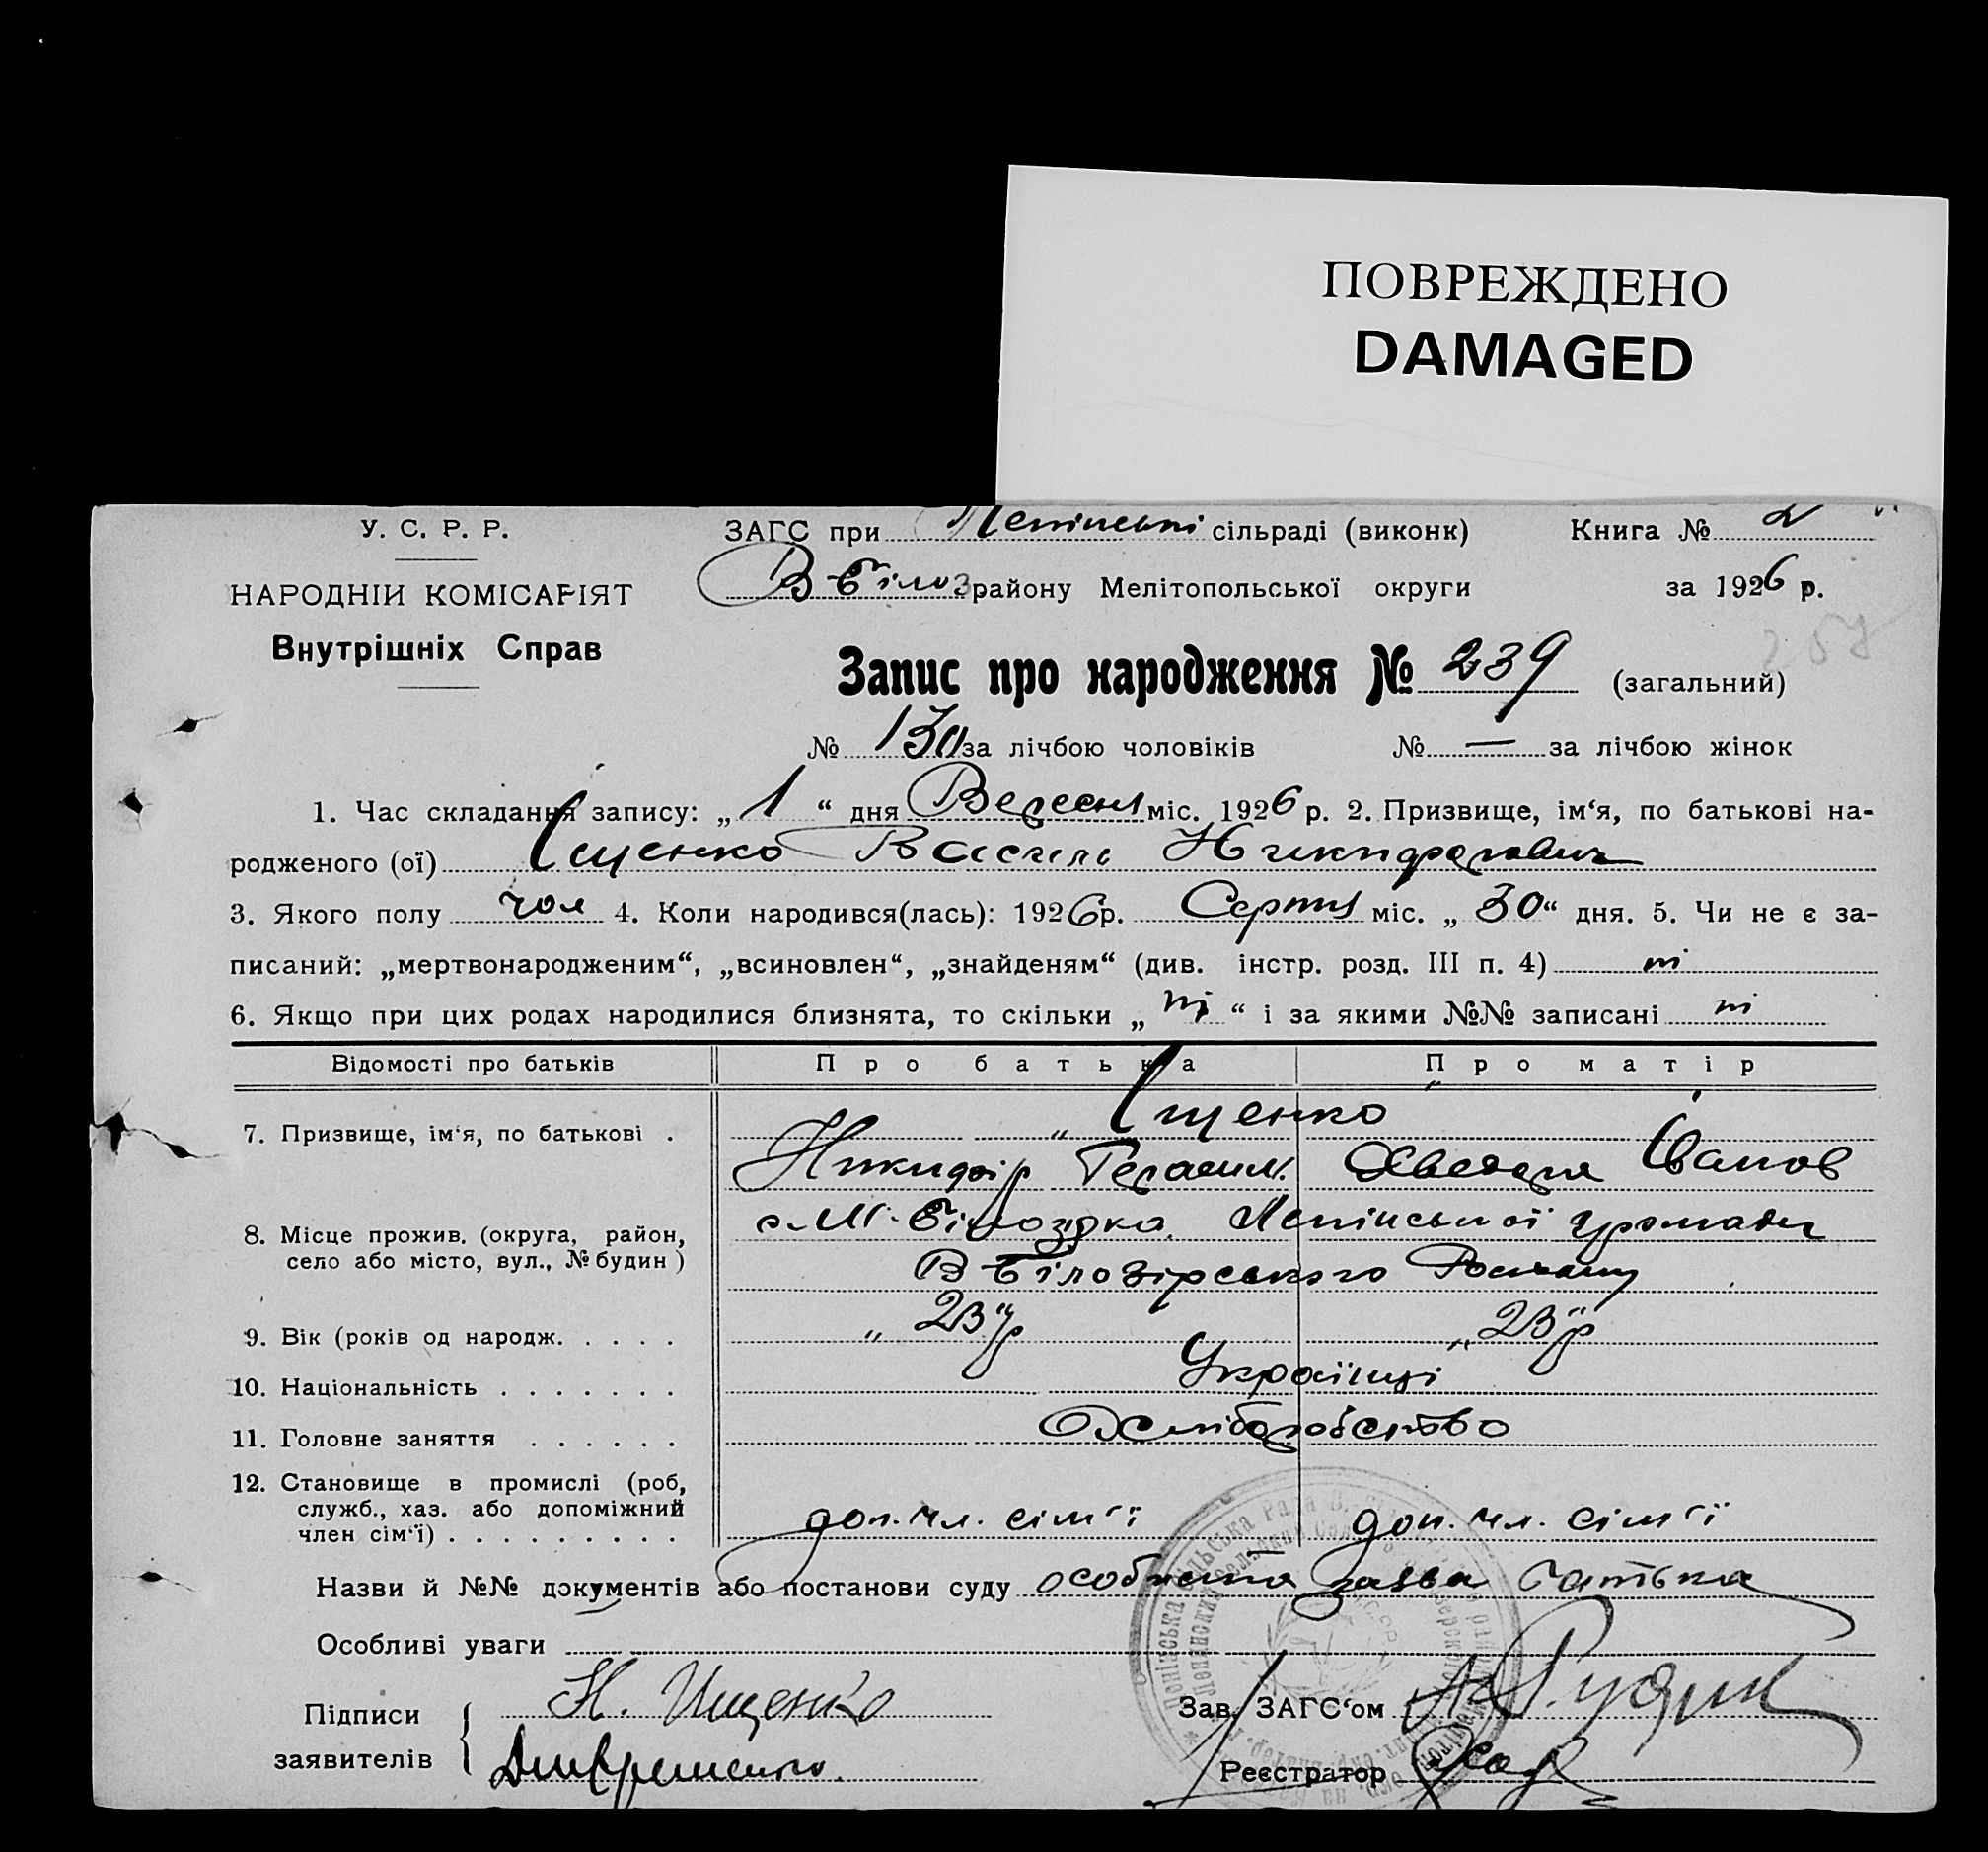 ПОВРЕЖДЕНО
DAMAGED
У. С. Р. Р.
ЗАГС при Ленінські сільраді (виконк)
Книга № 2
НАРОДНІЙ КОМІСАРІЯТ
В Білоз району Мелітопольської округи
за 1926 р.
Внутрішніх Справ
257
Запис про народження № 239 (загальний)
№ 130 за лічбою чоловіків № — за лічбою жінок
1. Час складання запису: „ 1 “ дня Вересня міс. 1926 р. 2. Призвище, ім‘я, по батькові на-
родженого (ої) Іщенко Василь Никифорович
3. Якого полу чол 4. Коли народився(лась): 1926 р. Серпня міс. „ 30 “ дня. 5. Чи не є за-
писаний: „мертвонародженим“, „всиновлен“, „знайденям“ (див. інстр. розд. III п. 4) ні
6. Якщо при цих родах народилися близнята, то скільки „ ні “ і за якими №№ записані ні
Відомості про батьків Про батька Про матір
7. Призвище, ім‘я, по батькові . Іщенко
Никифір Герасим. Хведора Іванов
8. Місце прожив. (округа, район,
село або місто, вул., № будин )
с. М. Білозірка Ленінської громади
В Білозірського Району
9. Вік (років од народж. . . . . „ 23 р „ 23 р
10. Національність . . . . . . . Українці
11. Головне заняття . . . . . . Хліборобство
12. Становище в промислі (роб,
служб., хаз. або допоміжний
член сім‘ї) . . . . . . . . . доп. чл. сім‘ї доп. чл. сім‘ї
Назви й №№ документів або постанови суду особиста заява батька
Особливі уваги
Підписи
заявителів
Н. Ищенко
Зав. ЗАГС‘ом
Реєстратор